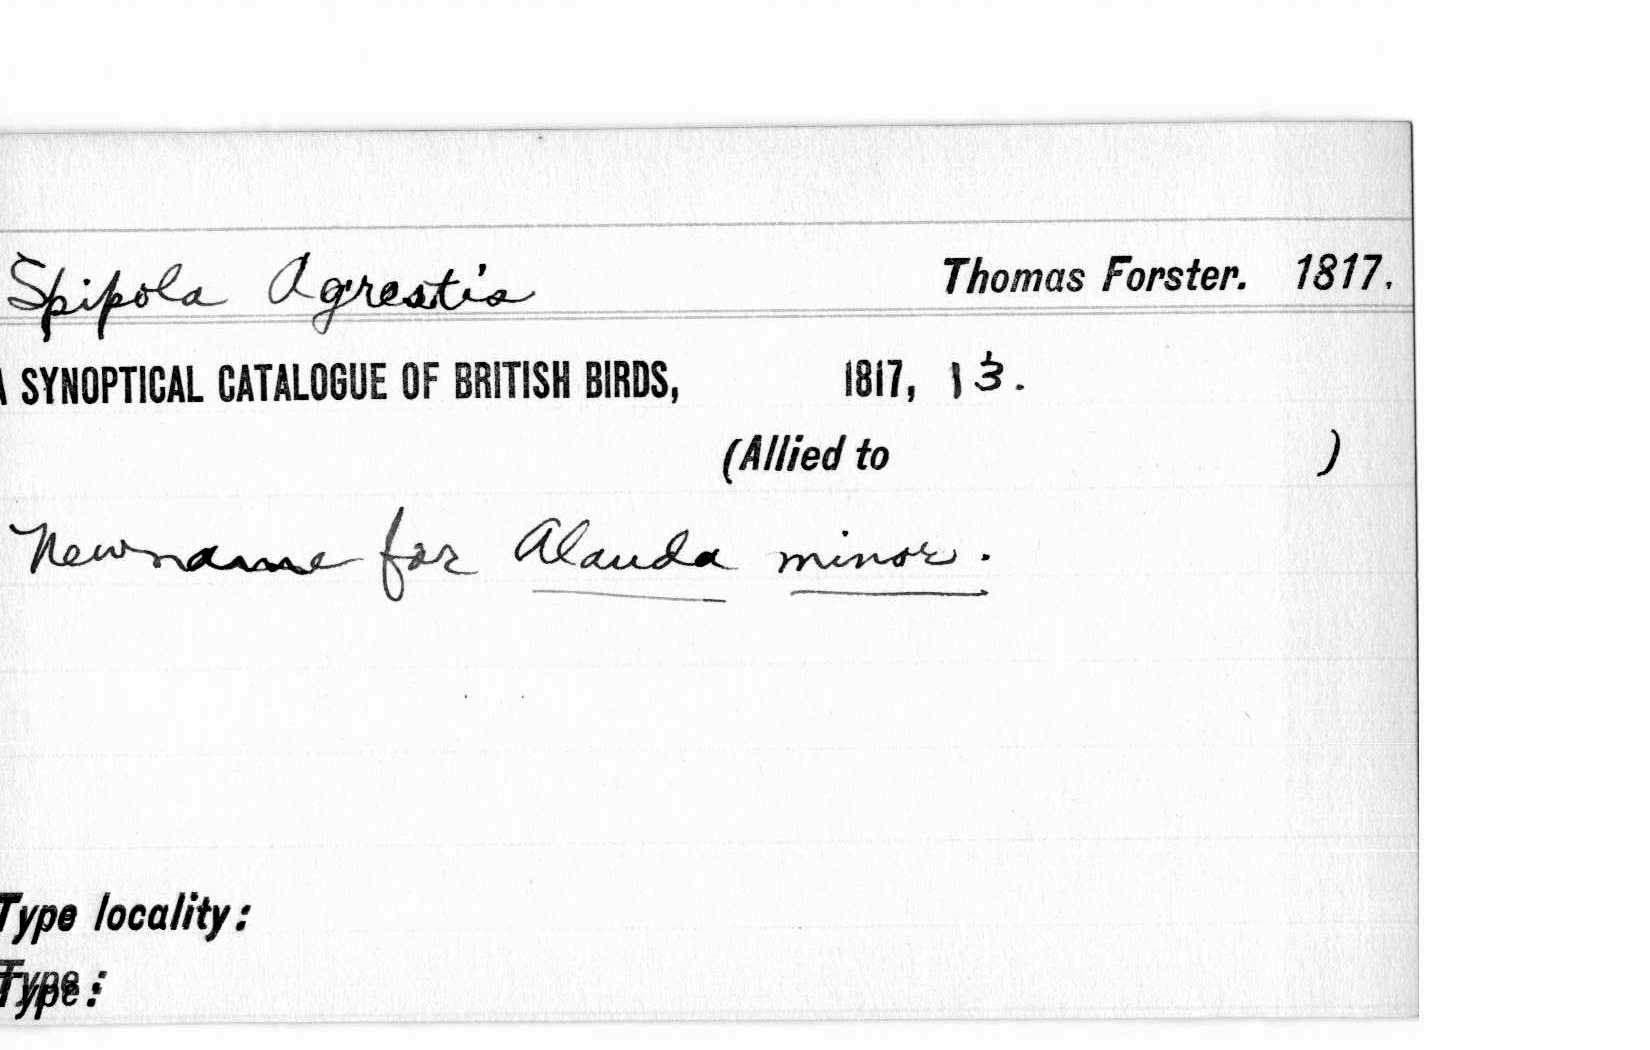 Spipola Agrestis Thomas Forster. 1817.
A SYNOPTICAL CATALOGUE OF BRITISH BIRDS, 1817, 13.
(Allied to )
New name for Alauda minor.
Type locality:
Type: